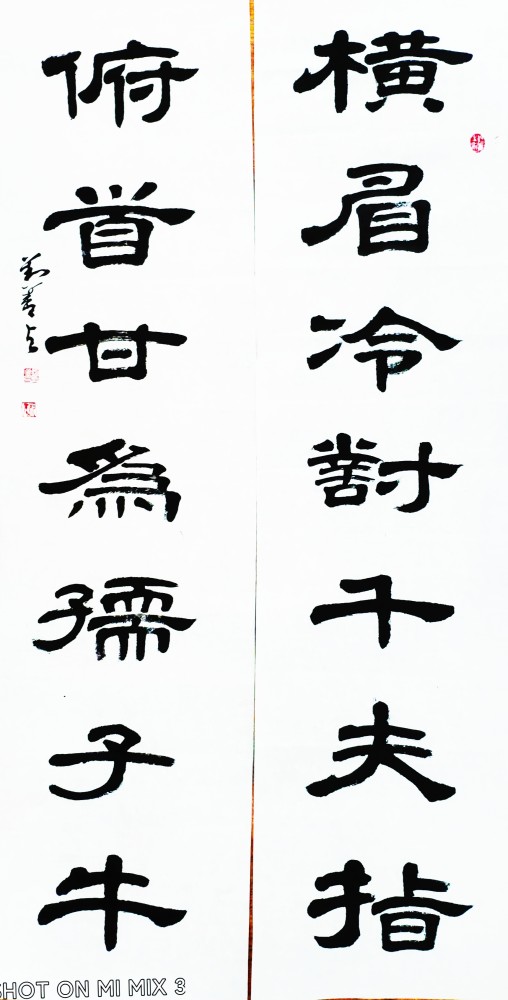 橫眉冷對千夫指
俯首甘為孺子牛
SHOT ON MI MIX 3